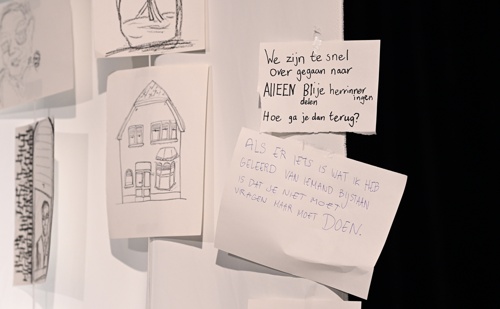 We zijn te snel
over gegaan naar
AllEEN Blije herrinner
delen ingen
Hoe ga je dan terug?
ALS ER IETS IS WAT IK HEB
GELEERD VAN IEMAND BIJSTAAN
IS DAT JE NIET MOET
VRAGEN MAAR MOET DOEN.